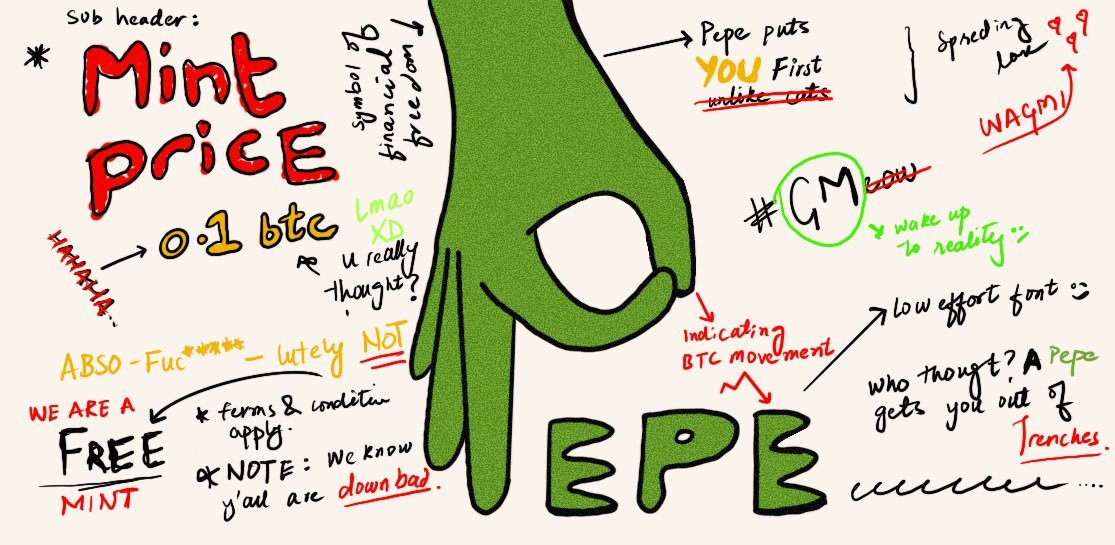 Sub header:
* Mint
price
HAHAHA...
0.1 btc
symbol of
financial
freedom
Lmao
XD
u really
thought?
ABSO-Fuc*****-lutely NOT
WE ARE A
FREE
MINT
* terms & condition
apply.
* NOTE: we know
y'all are down bad.
EPE
Pepe puts
YOU First
unlike cats
Spreding
love
WAGMI
#GMeow
wake up
to reality
Indicating
BTC movement
Low effort font
who thought? A Pepe
gets you out of
Trenches.
....